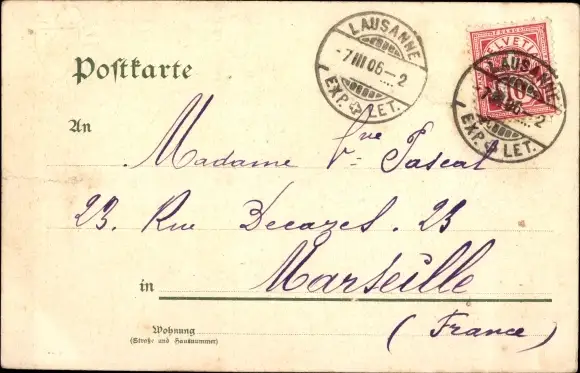 LAUSANNE
-7 III 06-2
EXP. LET.
HELVETIA
10
LAUSANNE
-7 III 06-2
EXP. LET.
Postkarte
An
Madame Vve Pascal
23. Rue Decazes. 23
in Marseille
(France)
Wohnung
(Straße und Hausnummer)